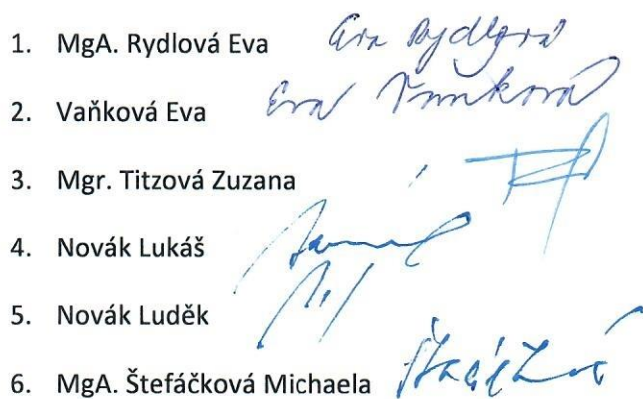 1. MgA. Rydlová Eva Eva Rydlová
2. Vaňková Eva Eva Vaňková
3. Mgr. Titzová Zuzana
4. Novák Lukáš
5. Novák Luděk
6. MgA. Štefáčková Michaela